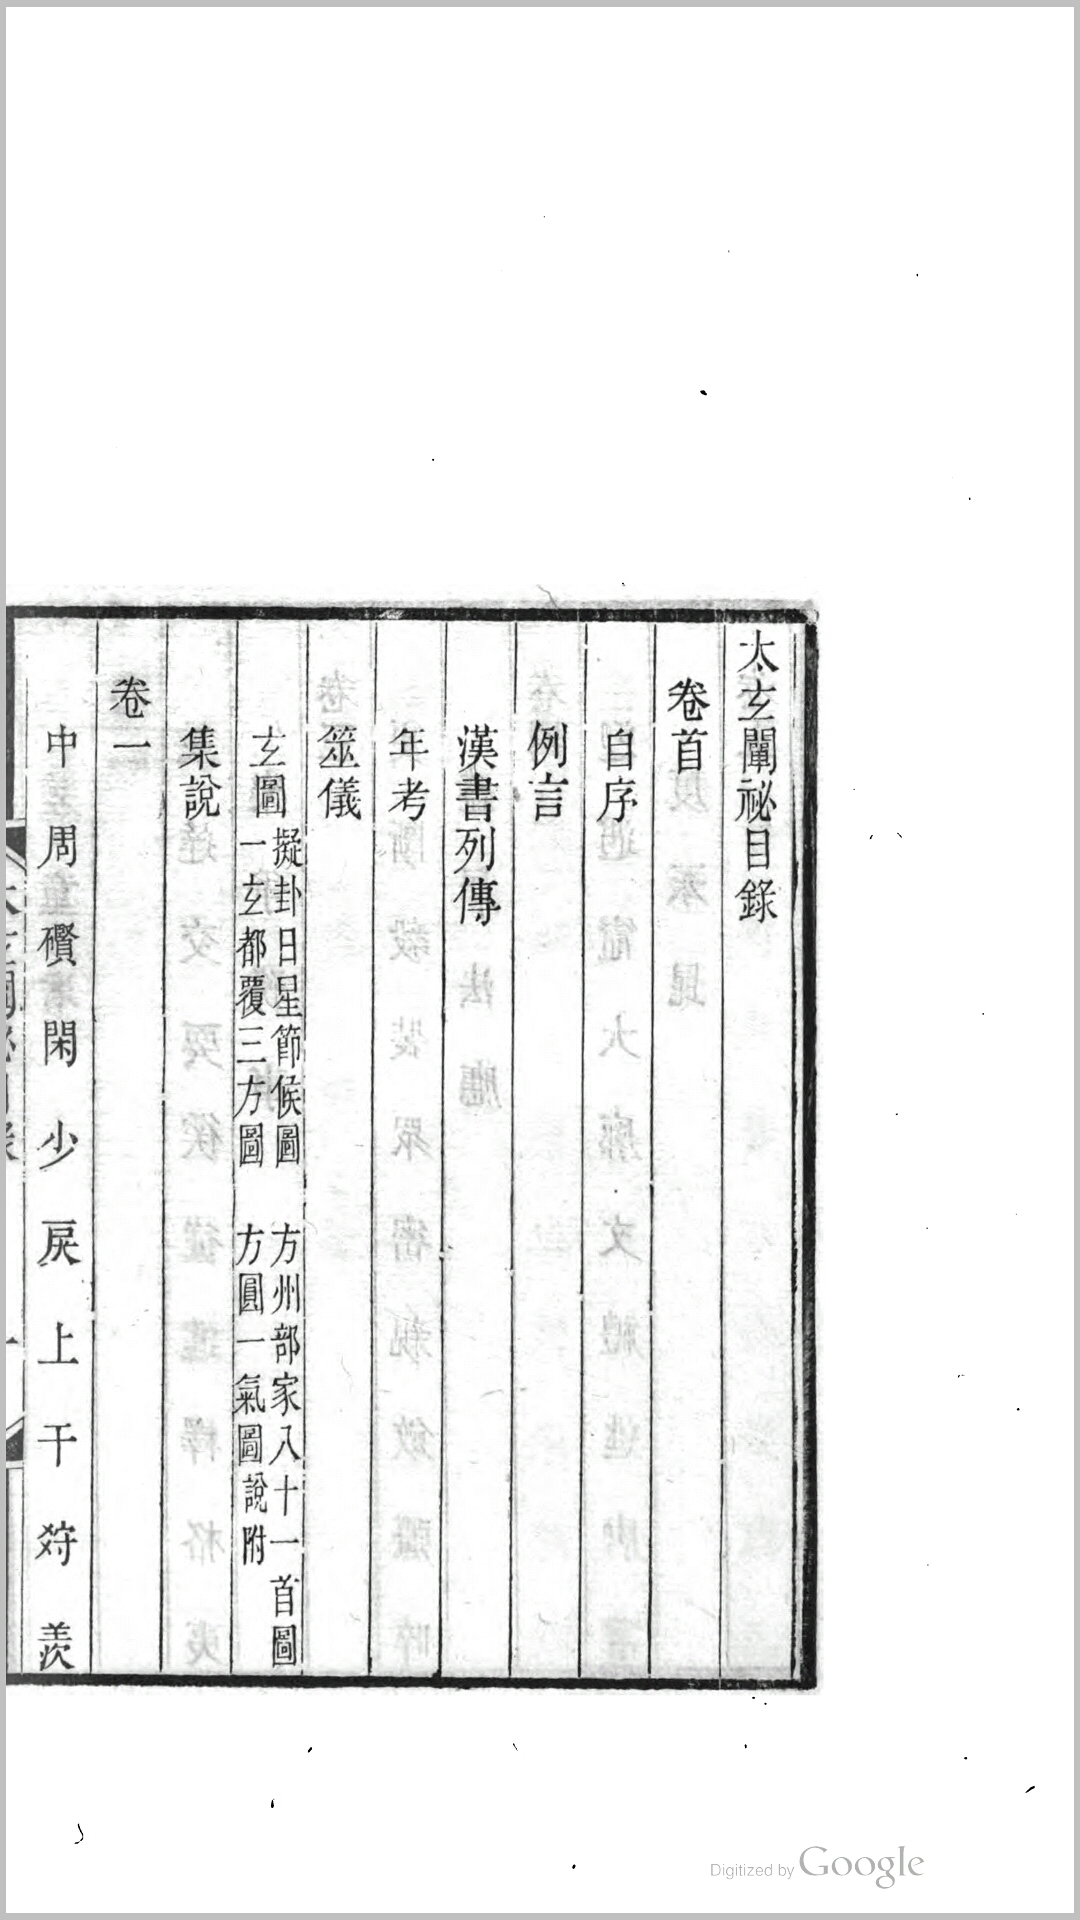 太玄闡祕目錄
卷首
自序
例言
漢書列傳
年考
筮儀
玄圖
擬卦日星節候圖　方州部家八十一首圖
一玄都覆三方圖　方圓一氣圖說附
集說
卷一
中　周　礥　閑　少　戾　上　干　狩　羨
Digitized by Google